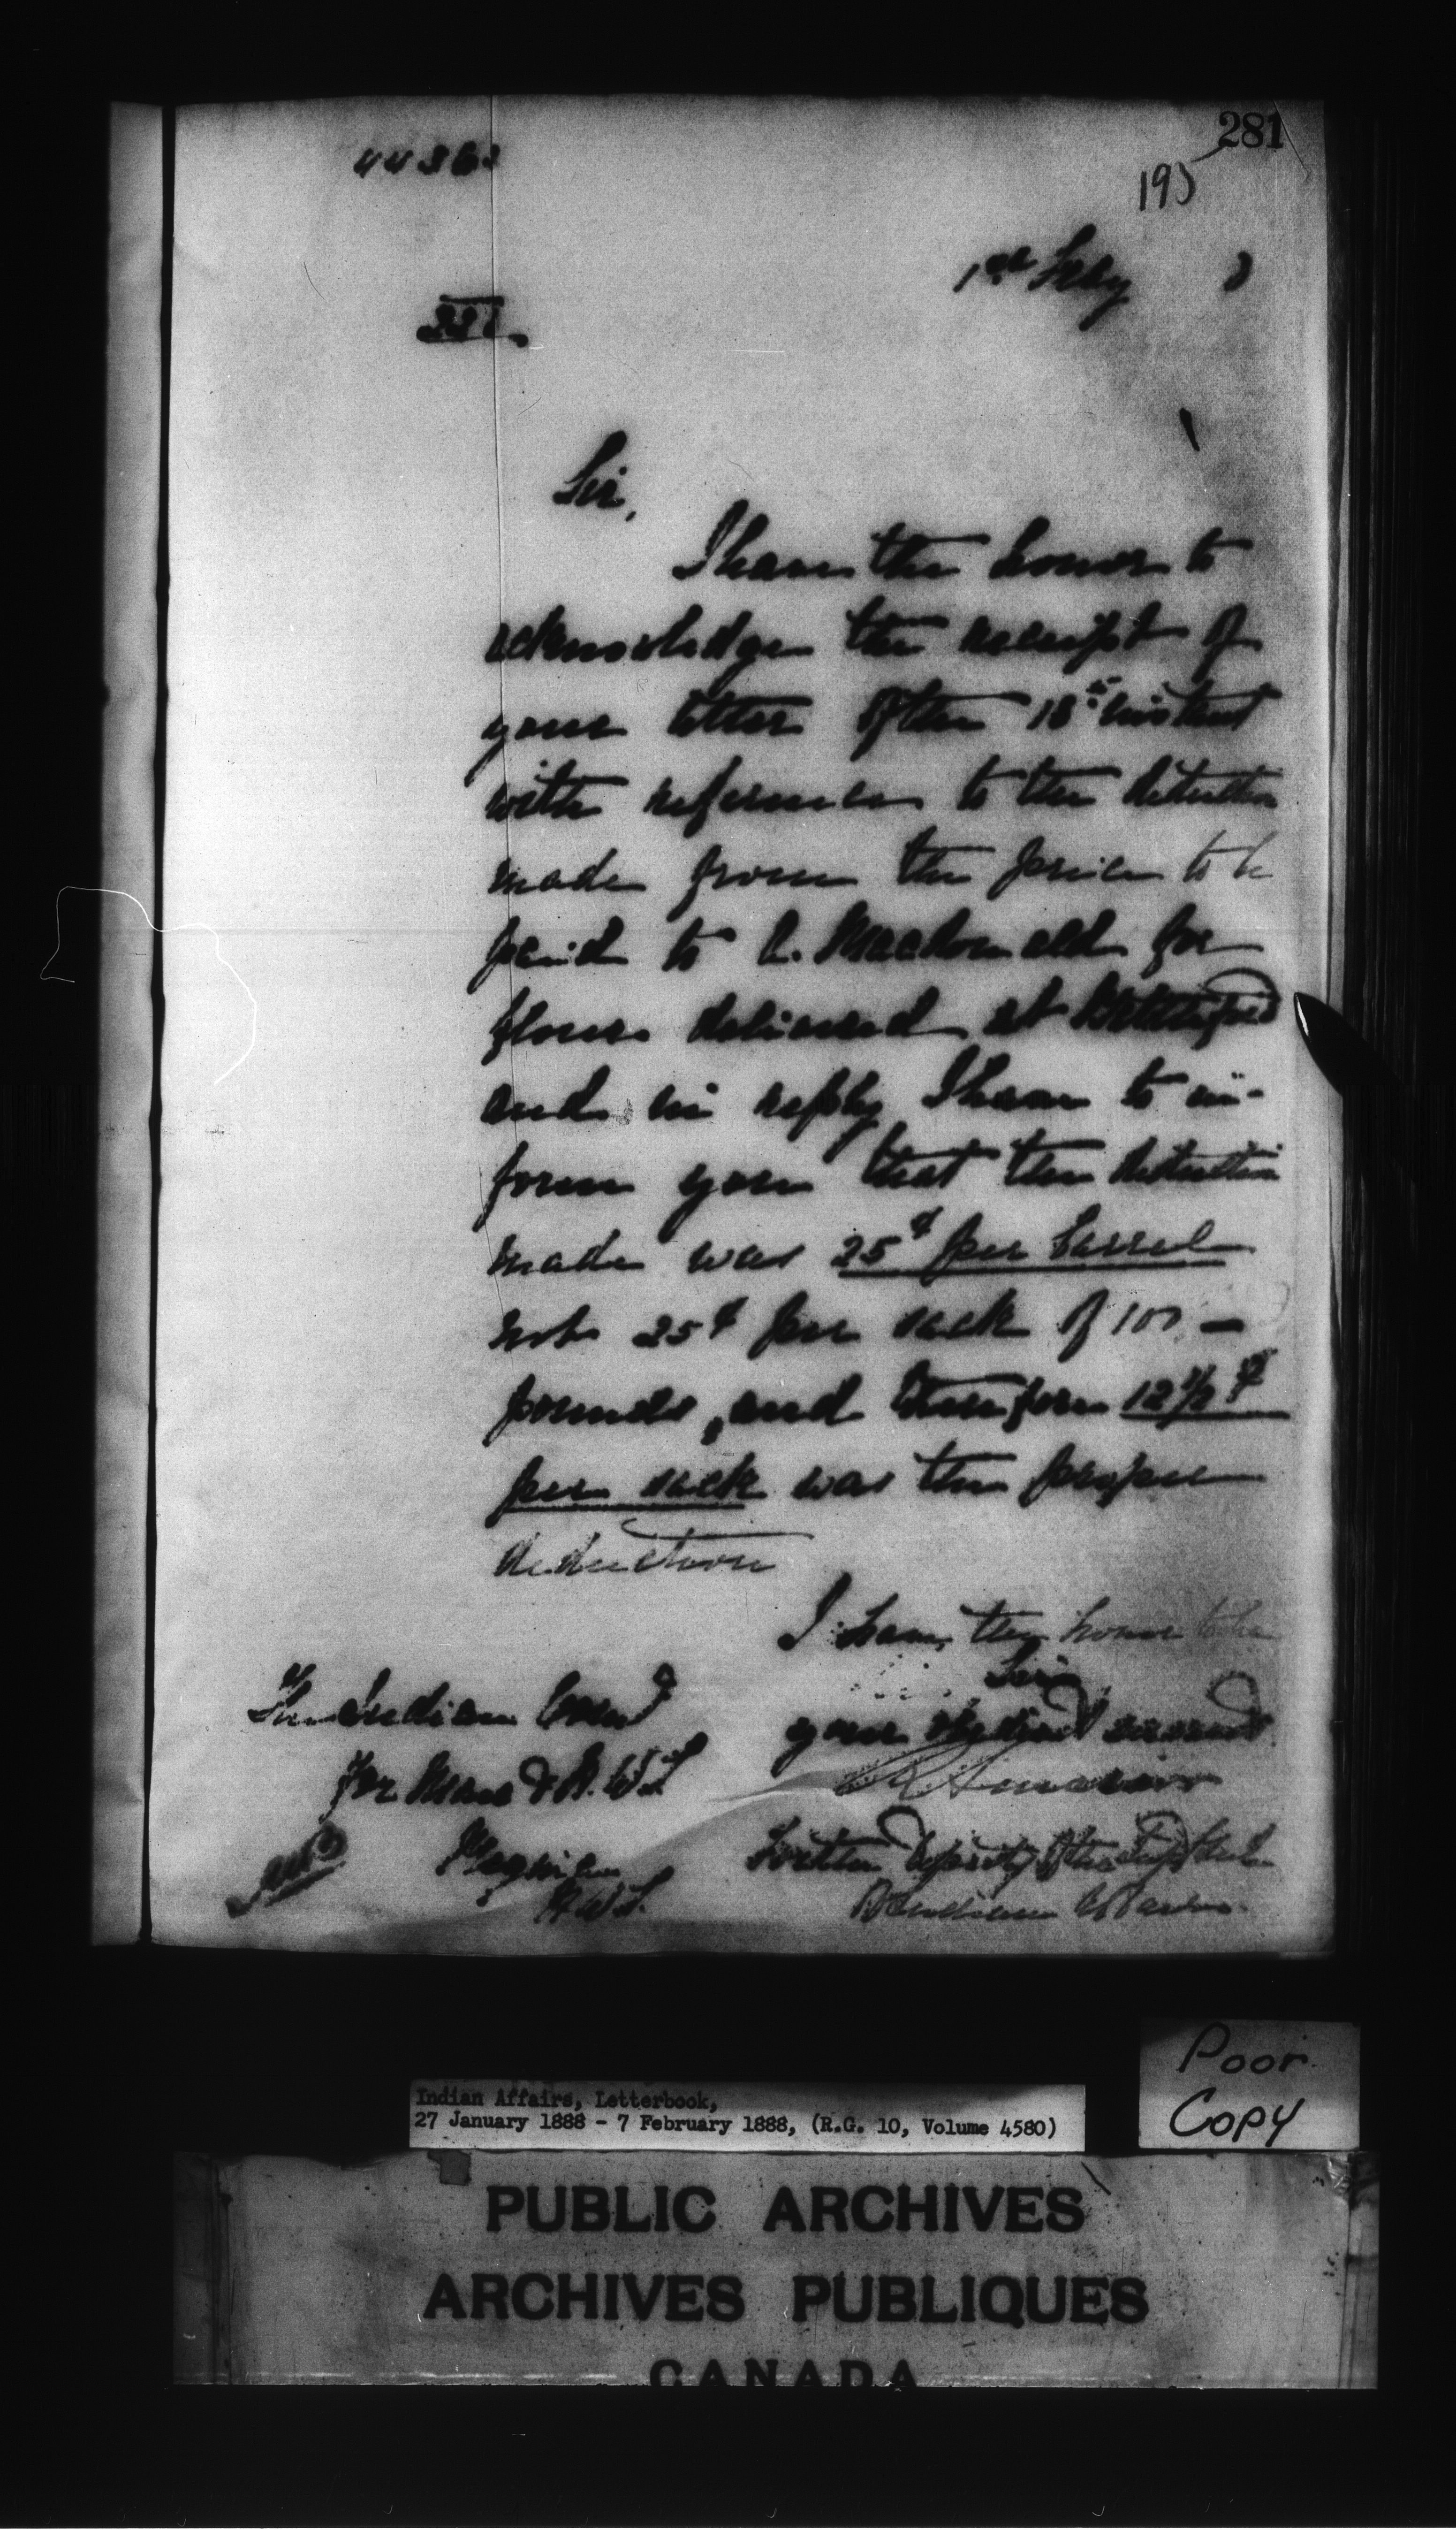 281
4436
195
1st Feby 8
Sir,
I have the honor to
acknowledge the receipt of
your letter of the 18th instant
with reference to the deduction
made from the price to be
paid to A. Macdonald for
flour delivered at Battleford
and in reply I have to in-
form you that the deduction
made was 25¢ per barrel
not 25¢ per sack of 100 -
pounds, and therefore 12½¢
per sack was the proper
deduction
I have the honor to be
Sir
your obedient servant
The Indian Comr
for Man & N.W.T.
Regina
N.W.T.
Deputy of the Supt Genl
of Indian Affairs.
Poor
Copy
Indian Affairs, Letterbook,
27 January 1888 - 7 February 1888, (R.G. 10, Volume 4580)
PUBLIC ARCHIVES
ARCHIVES PUBLIQUES
CANADA